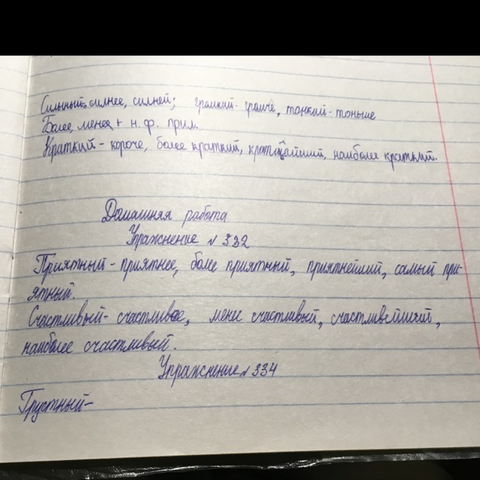 Сильный-силнее, силней; громкий-громче, тонкий-тоньше
Более менее + н. ф. прил.
Краткий - короче, более краткий, кратчайший, наиболее краткий.
Домашняя работа
Упражнение № 332
Приятный-приятнее, более приятный, приятнейший, самый при-
ятный.
Счастливый-счастливее, менее счастливый, счастливейший,
наиболее счастливый.
Упражнение № 334
Грустный-